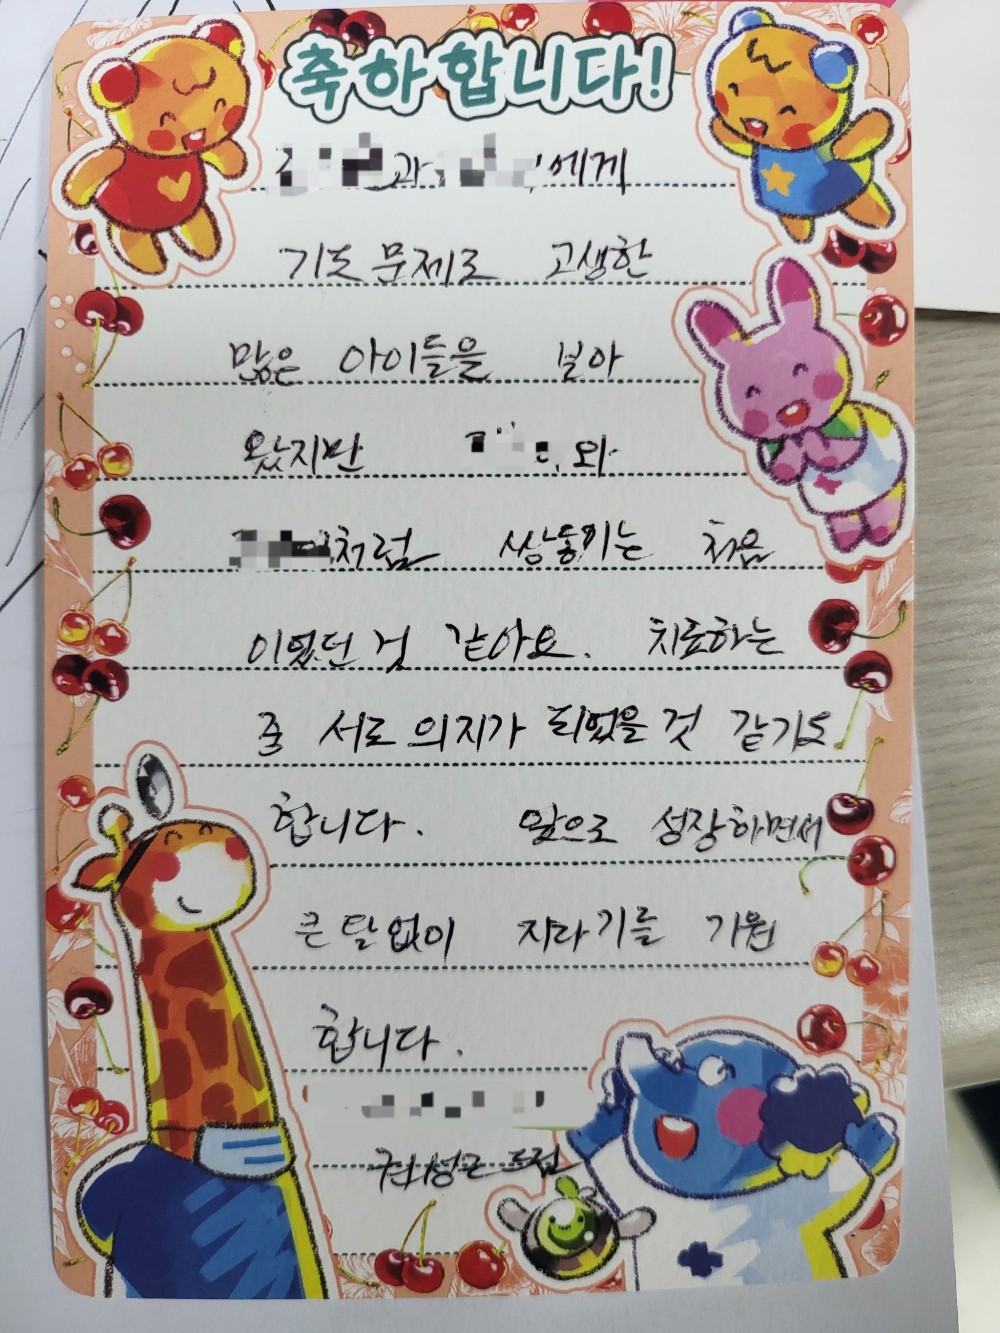 축하합니다!
과 에게
기도 문제로 고생한
많은 아이들을 보아
왔지만 와
처럼 쌍둥이는 처음
이었던 것 같아요. 치료하는
중 서로 의지가 되었을 것 같기도
합니다. 앞으로 성장하면서
큰 탈 없이 자라기를 기원
합니다.
드림